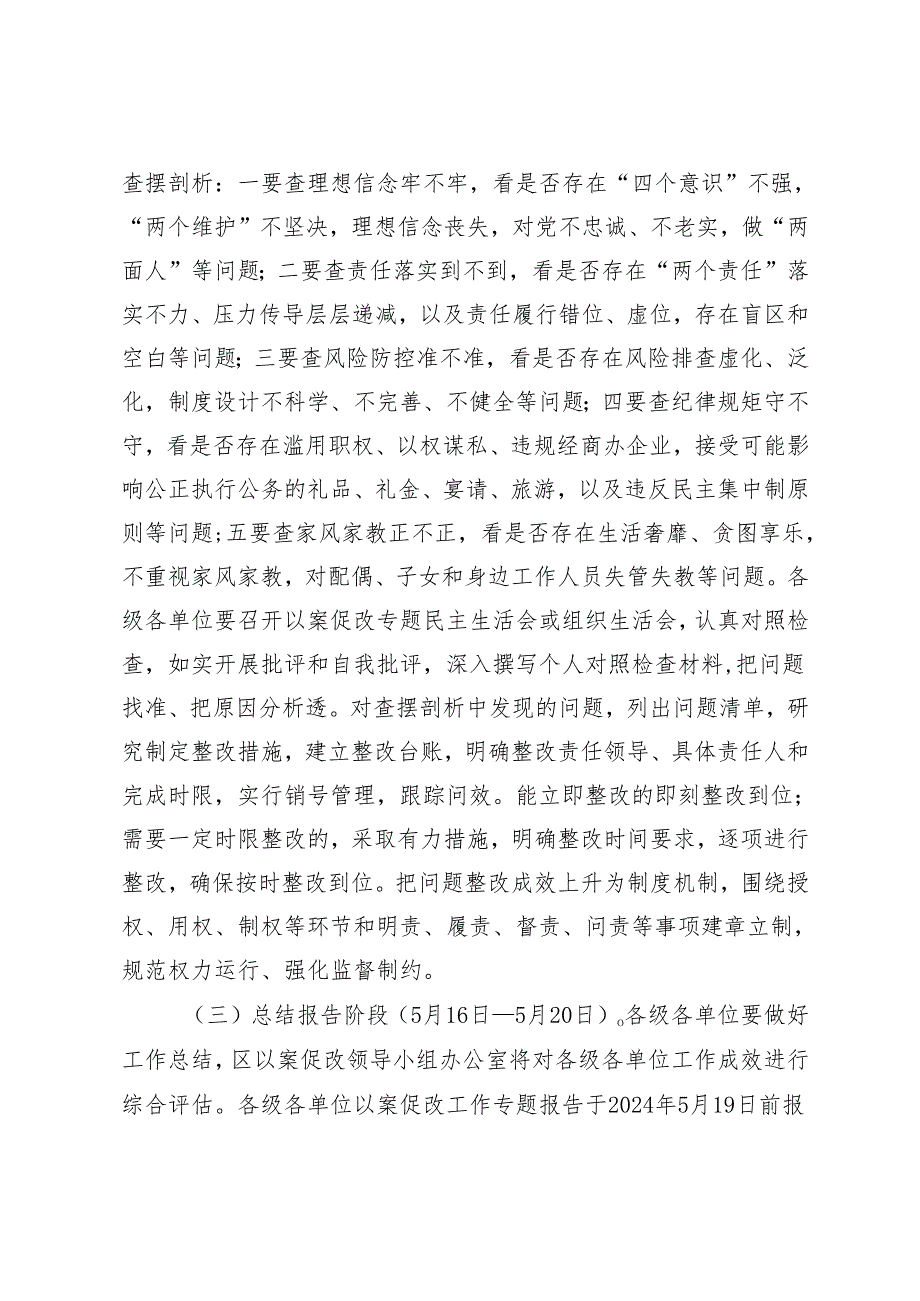 查摆剖析：一要查理想信念牢不牢，看是否存在“四个意识”不强，
“两个维护”不坚决，理想信念丧失，对党不忠诚、不老实，做“两
面人”等问题；二要查责任落实到不到，看是否存在“两个责任”落
实不力、压力传导层层递减，以及责任履行错位、虚位，存在盲区和
空白等问题；三要查风险防控准不准，看是否存在风险排查虚化、泛
化，制度设计不科学、不完善、不健全等问题；四要查纪律规矩守不
守，看是否存在滥用职权、以权谋私、违规经商办企业，接受可能影
响公正执行公务的礼品、礼金、宴请、旅游，以及违反民主集中制原
则等问题;五要查家风家教正不正，看是否存在生活奢靡、贪图享乐，
不重视家风家教，对配偶、子女和身边工作人员失管失教等问题。各
级各单位要召开以案促改专题民主生活会或组织生活会，认真对照检
查，如实开展批评和自我批评，深入撰写个人对照检查材料,把问题
找准、把原因分析透。对查摆剖析中发现的问题，列出问题清单，研
究制定整改措施，建立整改台账，明确整改责任领导、具体责任人和
完成时限，实行销号管理，跟踪问效。能立即整改的即刻整改到位；
需要一定时限整改的，采取有力措施，明确整改时间要求，逐项进行
整改，确保按时整改到位。把问题整改成效上升为制度机制，围绕授
权、用权、制权等环节和明责、履责、督责、问责等事项建章立制，
规范权力运行、强化监督制约。
（三）总结报告阶段（5月16日—5月20日）。各级各单位要做好
工作总结，区以案促改领导小组办公室将对各级各单位工作成效进行
综合评估。各级各单位以案促改工作专题报告于2024年5月19日前报